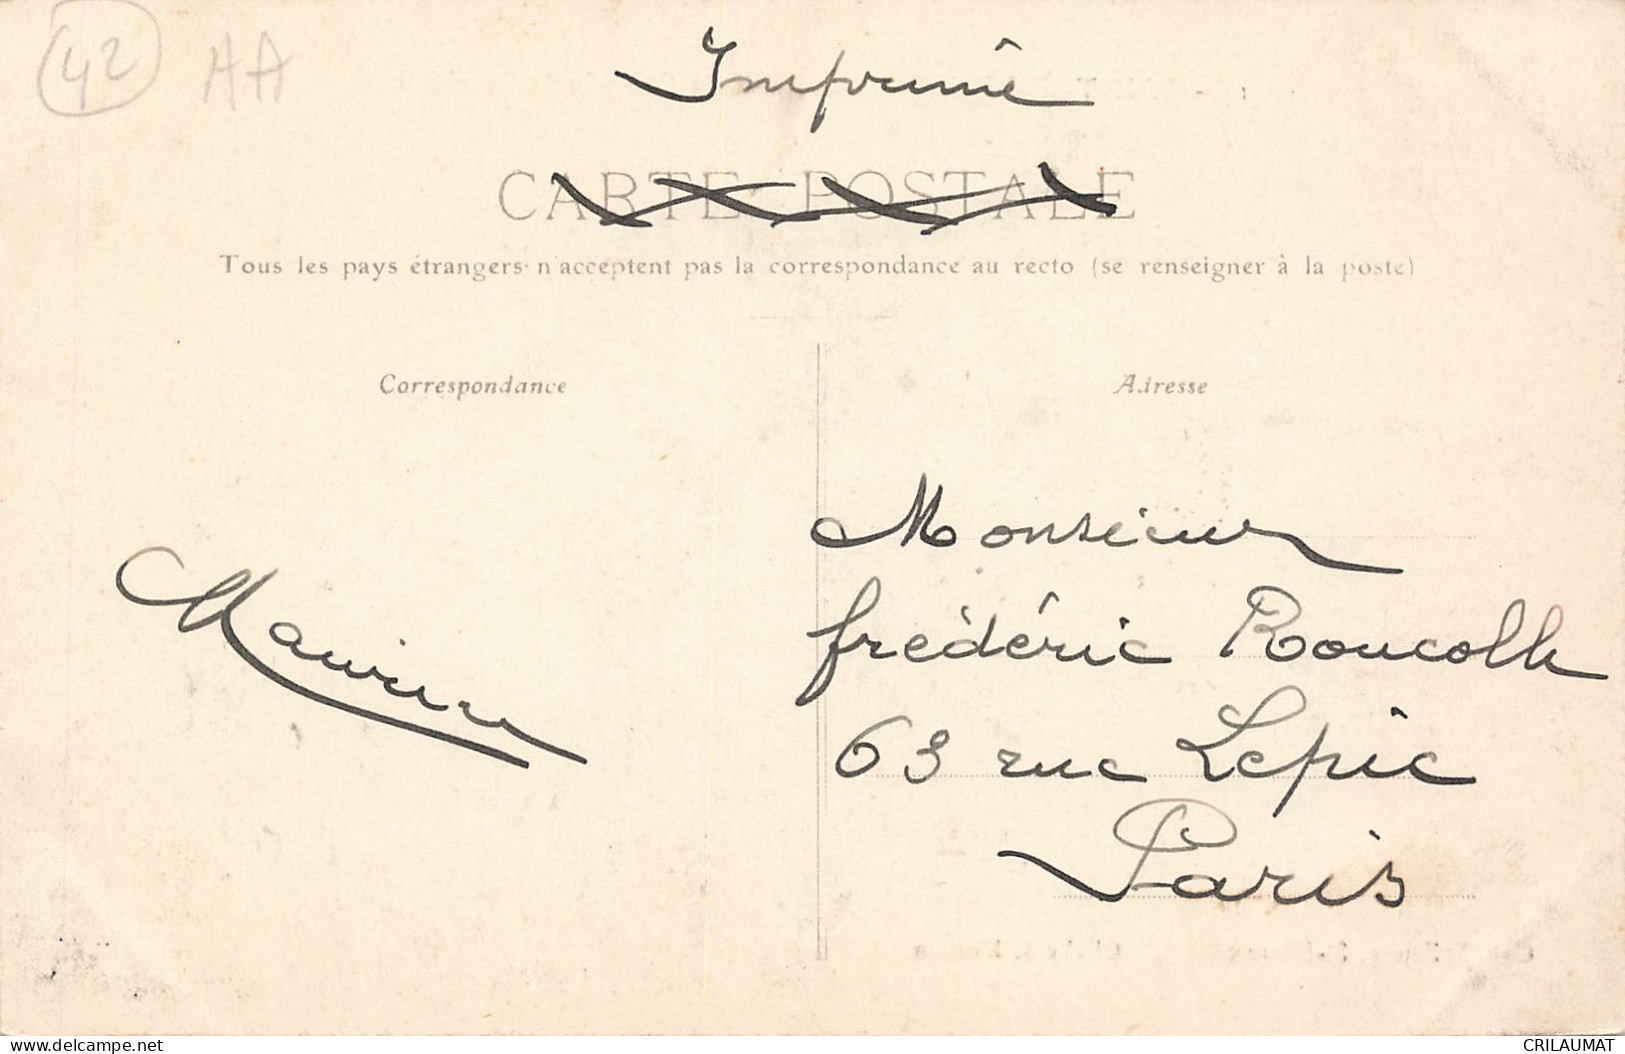 42 AA
Imprimé
CARTE POSTALE
Tous les pays étrangers n'acceptent pas la correspondance au recto (se renseigner à la poste)
Correspondance
Adresse
Monsieur
frédéric Roucolle
63 rue Lepic
Paris
Maurice
www.delcampe.net
CRILAUMAT